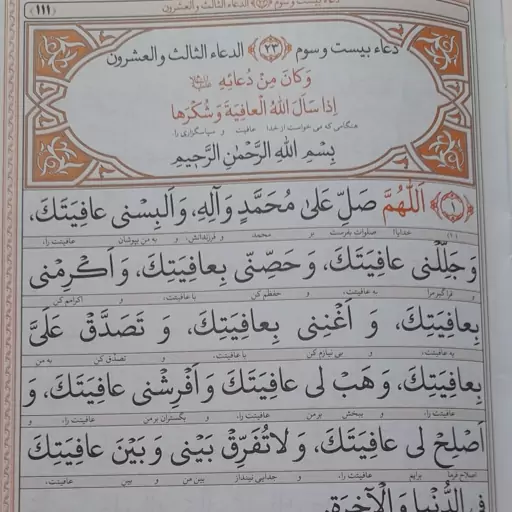 دعاء بیست و سوم ﴿٢٣﴾ الدعاء الثالث و العشرون ﴿١١١﴾
دعاء بیست و سوم ﴿٢٣﴾ الدعاء الثالث و العشرون
وَ كَانَ مِنْ دُعَائِهِ
إِذَا سَأَلَ اللهَ الْعَافِيَةَ وَ شُكْرَهَا
هنگامی که می خواست از خدا عافیت و سپاسگزاری را
بِسْمِ اللهِ الرَّحْمٰنِ الرَّحِيمِ
﴿١﴾ اَللّٰهُمَّ صَلِّ عَلىٰ مُحَمَّدٍ وَ آلِهِ، وَ اَلْبِسْنى عافِيَتَكَ،
(١) خدایا! صلوات بفرست بر محمد و فرزندانش، و به من بپوشان عافیتت را،
وَ جَلِّلْنى عافِيَتَكَ، وَ حَصِّنّى بِعافِيَتِكَ، وَ اَكْرِمْنى
و فراگیر مرا به عافیتت، و حفظم کن با عافیتت، و اکرامم کن
بِعافِيَتِكَ، وَ اَغْنِنى بِعافِيَتِكَ، وَ تَصَدَّقْ عَلَىَّ
به عافیتت، و بی نیازم کن با عافیتت، و تصدّق کن به من
بِعافِيَتِكَ، وَ هَبْ لى عافِيَتَكَ وَ اَفْرِشْنى عافِيَتَكَ، وَ
عافیتت را، و ببخش برمن عافیتت را، و بگستران برمن عافیتت را، و
اَصْلِحْ لى عافِيَتَكَ، وَ لاتُفَرِّقْ بَيْنى وَ بَيْنَ عافِيَتِكَ
اصلاح فرما برایم عافیتت را، و جدایی نینداز بین من و بین عافیتت،
فِى الدُّنْيا وَ الْآخِرَةِ.